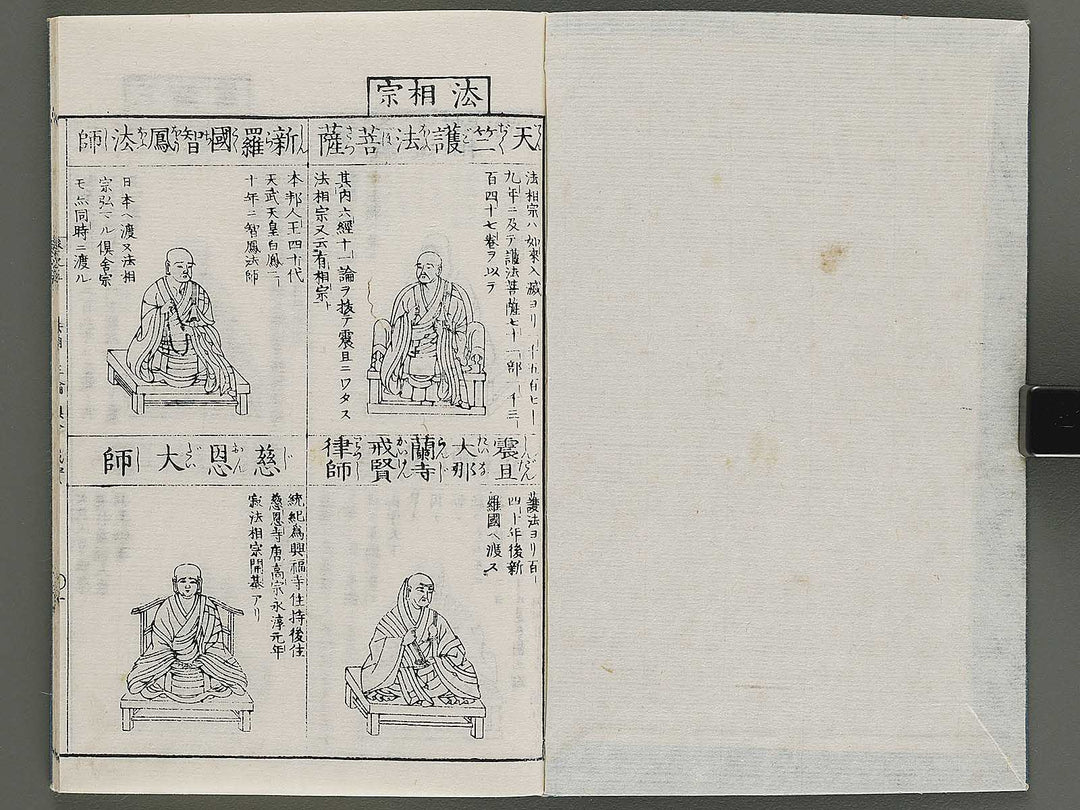 法相宗
天竺護法菩薩
法相宗ハ如來入滅ヨリ千五百七十
九年ニ及テ護法菩薩七十一部一千三
百四十七巻ヲ以テ
其内六經十一論ヲ抜テ震旦ニワタス
法相宗又云有相宗ト
新羅國智鳳法師
本邦人王四十代
天武天皇白鳳二
十年ニ智鳳法師
日本ヘ渡又法相
宗弘マル倶舎宗
モ亦同時ニ渡ル
震旦大那蘭寺戒賢律師
護法ヨリ百
四十年後新
羅國ヘ渡ス
慈恩大師
統紀爲興福寺住持後住
慈恩寺唐高宗永淳元年
寂法相宗開基アリ